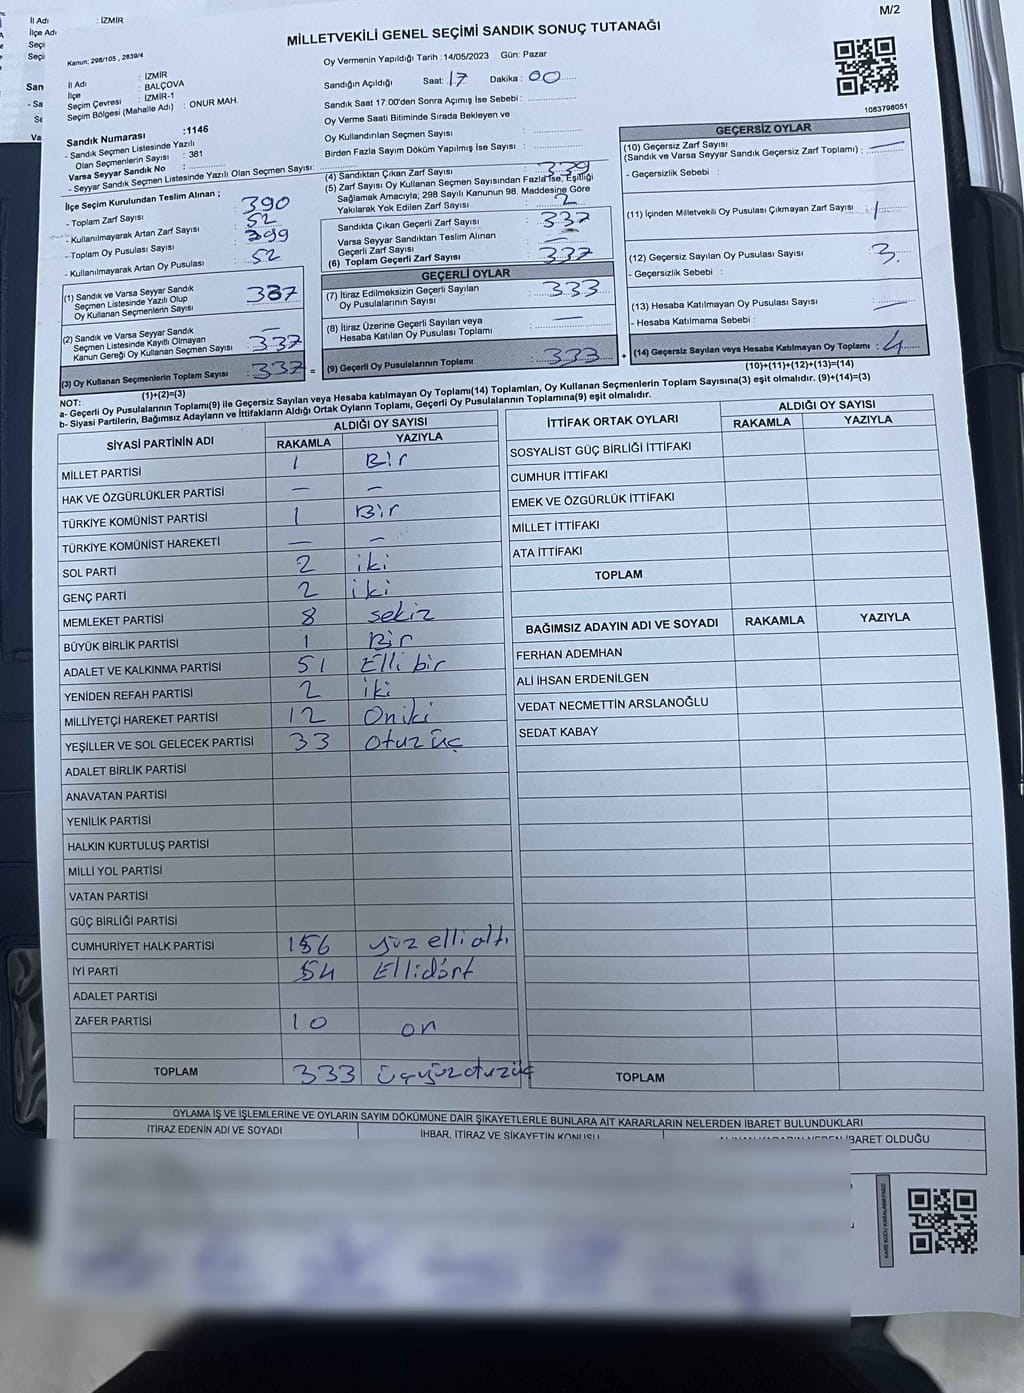 İl Adı : İZMİR
İlçe Adı
Seçi
Seçi
San
- Sa
Va
M/2
MİLLETVEKİLİ GENEL SEÇİMİ SANDIK SONUÇ TUTANAĞI
Kanun: 298/105 , 2839/4
İl Adı : İZMİR
İlçe : BALÇOVA
Seçim Çevresi : İZMİR-1
Seçim Bölgesi (Mahalle Adı) : ONUR MAH.
Sandık Numarası :1146
- Sandık Seçmen Listesinde Yazılı
Olan Seçmenlerin Sayısı : 381
Varsa Seyyar Sandık No :
- Seyyar Sandık Seçmen Listesinde Yazılı Olan Seçmen Sayısı:
Oy Vermenin Yapıldığı Tarih :14/05/2023 Gün: Pazar
Sandığın Açıldığı Saat: 17 Dakika : 00
Sandık Saat 17:00'den Sonra Açımış İse Sebebi :
Oy Verme Saati Bitiminde Sırada Bekleyen ve
Oy Kullandırılan Seçmen Sayısı :
Birden Fazla Sayım Döküm Yapılmış İse Sayısı :
1083798051
İlçe Seçim Kurulundan Teslim Alınan ;
- Toplam Zarf Sayısı : 390
- Kullanılmayarak Artan Zarf Sayısı : 52
- Toplam Oy Pusulası Sayısı : 399
- Kullanılmayarak Artan Oy Pusulası : 52
(1) Sandık ve Varsa Seyyar Sandık
Seçmen Listesinde Yazılı Olup
Oy Kullanan Seçmenlerin Sayısı : 337
(2) Sandık ve Varsa Seyyar Sandık
Seçmen Listesinde Kayıtlı Olmayan
Kanun Gereği Oy Kullanan Seçmen Sayısı : – 337
(3) Oy Kullanan Seçmenlerin Toplam Sayısı : 337 =
(1)+(2)=(3)
(4) Sandıktan Çıkan Zarf Sayısı : 339
(5) Zarf Sayısı Oy Kullanan Seçmen Sayısından Fazla İse, Eşitliği
Sağlamak Amacıyla; 298 Sayılı Kanunun 98. Maddesine Göre
Yakılarak Yok Edilen Zarf Sayısı : 2
Sandıkta Çıkan Geçerli Zarf Sayısı : 337
Varsa Seyyar Sandıktan Teslim Alınan
Geçerli Zarf Sayısı : –
(6) Toplam Geçerli Zarf Sayısı : 337
GEÇERLİ OYLAR
(7) İtiraz Edilmeksizin Geçerli Sayılan
Oy Pusulalarının Sayısı : 333
(8) İtiraz Üzerine Geçerli Sayılan veya
Hesaba Katılan Oy Pusulası Toplamı : –
(9) Geçerli Oy Pusulalarının Toplamı : 333 +
GEÇERSİZ OYLAR
(10) Geçersiz Zarf Sayısı
(Sandık ve Varsa Seyyar Sandık Geçersiz Zarf Toplamı) : –
- Geçersizlik Sebebi :
(11) İçinden Milletvekili Oy Pusulası Çıkmayan Zarf Sayısı : 1
(12) Geçersiz Sayılan Oy Pusulası Sayısı : 3.
- Geçersizlik Sebebi :
(13) Hesaba Katılmayan Oy Pusulası Sayısı : –
- Hesaba Katılmama Sebebi :
(14) Geçersiz Sayılan veya Hesaba Katılmayan Oy Toplamı : 4
(10)+(11)+(12)+(13)=(14)
NOT:
a- Geçerli Oy Pusulalarının Toplamı(9) ile Geçersiz Sayılan veya Hesaba katılmayan Oy Toplamı(14) Toplamları, Oy Kullanan Seçmenlerin Toplam Sayısına(3) eşit olmalıdır. (9)+(14)=(3)
b- Siyasi Partilerin, Bağımsız Adayların ve İttifakların Aldığı Ortak Oyların Toplamı, Geçerli Oy Pusulalarının Toplamına(9) eşit olmalıdır.
SİYASİ PARTİNİN ADI ALDIĞI OY SAYISI
RAKAMLA YAZIYLA
MİLLET PARTİSİ 1 Bir
HAK VE ÖZGÜRLÜKLER PARTİSİ – –
TÜRKİYE KOMÜNİST PARTİSİ 1 Bir
TÜRKİYE KOMÜNİST HAREKETİ – –
SOL PARTİ 2 iki
GENÇ PARTİ 2 iki
MEMLEKET PARTİSİ 8 sekiz
BÜYÜK BİRLİK PARTİSİ 1 Bir
ADALET VE KALKINMA PARTİSİ 51 Elli bir
YENİDEN REFAH PARTİSİ 2 iki
MİLLİYETÇİ HAREKET PARTİSİ 12 Oniki
YEŞİLLER VE SOL GELECEK PARTİSİ 33 otuz üç
ADALET BİRLİK PARTİSİ
ANAVATAN PARTİSİ
YENİLİK PARTİSİ
HALKIN KURTULUŞ PARTİSİ
MİLLİ YOL PARTİSİ
VATAN PARTİSİ
GÜÇ BİRLİĞİ PARTİSİ
CUMHURİYET HALK PARTİSİ 156 yüz elli altı
İYİ PARTİ 54 Ellidört
ADALET PARTİSİ
ZAFER PARTİSİ 10 on
TOPLAM 333 üçyüzotuzüç
İTTİFAK ORTAK OYLARI ALDIĞI OY SAYISI
RAKAMLA YAZIYLA
SOSYALİST GÜÇ BİRLİĞİ İTTİFAKI
CUMHUR İTTİFAKI
EMEK VE ÖZGÜRLÜK İTTİFAKI
MİLLET İTTİFAKI
ATA İTTİFAKI
TOPLAM
BAĞIMSIZ ADAYIN ADI VE SOYADI RAKAMLA YAZIYLA
FERHAN ADEMHAN
ALİ İHSAN ERDENİLGEN
VEDAT NECMETTİN ARSLANOĞLU
SEDAT KABAY
TOPLAM
OYLAMA İŞ VE İŞLEMLERİNE VE OYLARIN SAYIM DÖKÜMÜNE DAİR ŞİKAYETLERLE BUNLARA AİT KARARLARIN NELERDEN İBARET BULUNDUKLARI
İTİRAZ EDENİN ADI VE SOYADI İHBAR, İTİRAZ VE ŞİKAYETİN KONUSU İBARET OLDUĞU